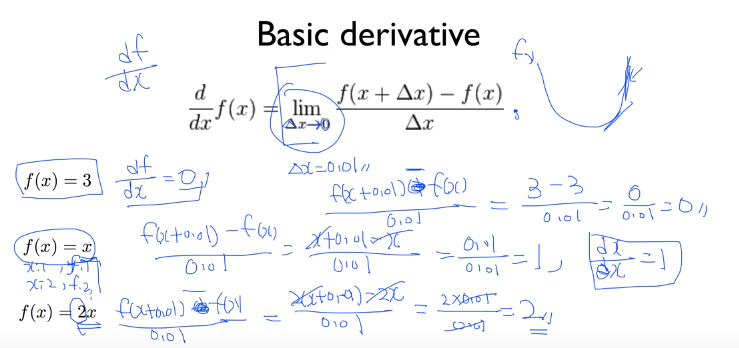 Basic derivative
df/dx
fx
d/dx f(x) = lim Δx→0 f(x + Δx) − f(x) / Δx
Δx=0.01
f(x) = 3 df/dx = 0, f(x+0.01) - f(x) / 0.01 = 3-3 / 0.01 = 0/0.01 = 0
f(x) = x f(x+0.01) - f(x) / 0.01 = x+0.01-x / 0.01 = 0.01/0.01 = 1, dx/dx = 1
x=1, f=1
x=2, f=2
f(x) = 2x f(x+0.01) - f(x) / 0.01 = 2(x+0.01)-2x / 0.01 = 2×0.01/0.01 = 2